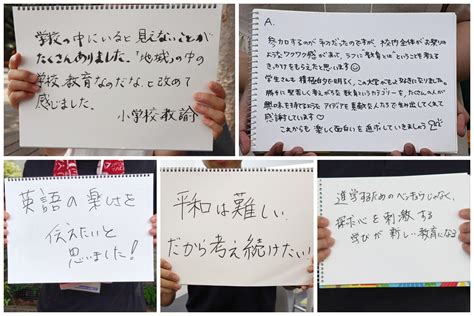 学校の中にいると見えないことが
たくさんありました。「地域」の中の
学校、教育なのだな、と改めて
感じました。
小学校教諭
A.
参加するのが初めてだったのですが、校内全体がお祭りの
ようなワクワク感があって、ラフに教育とは？ということを考える
きっかけをもらえたと思います
学生さんも積極的で明るく、この大学がもっと好きになりました。
勝手に堅苦しく考えがちな教育というカテゴリーを、たくさんの人が
興味を持てるようなアイデアを素敵な人たちで生み出してくれて
感謝しています
これからも「楽しく面白い」を追求していきましょう
英語の楽しさを
伝えたいと
思いました!
平和は難しい
だから考え続けたい
進学するためのベンキョウじゃなく、
探求心を刺激する
学びが新しい教育になる